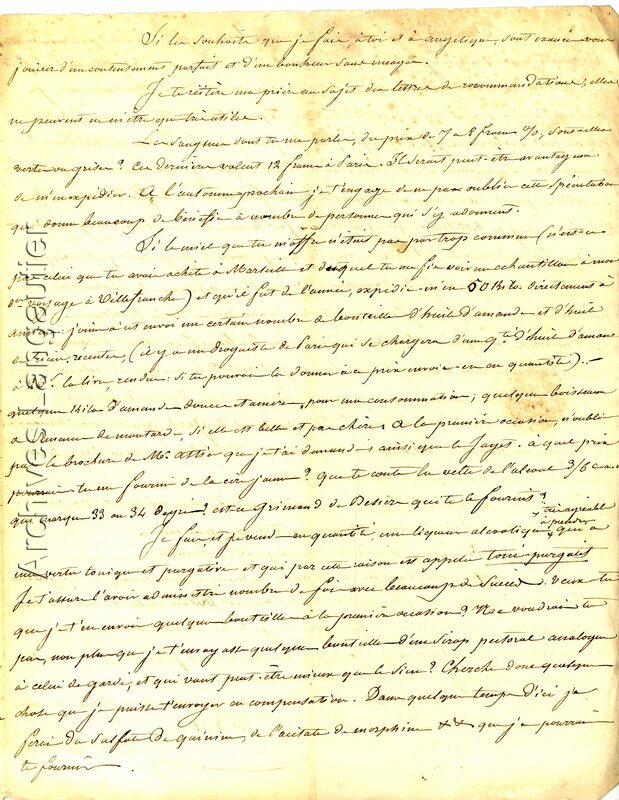 Si les souhaits que je fais, à toi et à angelique, sont exaucés vous
jouirez d'un contentement parfait et d'un bonheur sans nuages.
Je te réitère ma prière au sujet des lettres de recommandations; elles
ne peuvent m'être que très utiles.
Les sangsues dont tu me parles, du prix de 7 a 8 francs %, sont-elles
vertes ou grises? Ces dernières valent 12 francs à Paris. Il serait peut-être avantageux
de m'en expédier. A l'automne prochain je t'engage de ne pas oublier cette spéculation
qui donne beaucoup de bénéfice à nombre de personnes qui s'y adonnent.
Si le miel que tu m'offre n'était pas par trop commun (
pas celui que tu avais acheté à Marseille et duquel tu me fis voir un échantillon à mon
voyage à Villefranche) et qu'il fut de l'année, expédie m'en 50 Kilos directement à
joins à cet envoi un certain nombre de bouteilles d'huile d'amandes et d'huile
de ricin, récentes, (il y a un droguiste de Paris qui se chargera d'un q.té d'huile d'amandes
à la livre, rendue: si tu pourrais la donner à ce prix envoie-en en quantité).
quelques Kilos d'amandes douces et amères, pour ma consommation; quelques boisseaux
de semences de moutarde, si elle est belle et pas chère. A la première occasion, n'oublie
pas la brochure de Mr. Attia que je t'ai demandé ainsi que le Jayet. à quel prix
pourrais tu me fournir de la cire jaune? que te coute la velte de l'alcool 3/6
qui marque 33 ou 34 degrés? est-ce Grimaud de Besiers qui te le fournis?
Je fais, et je vend en quantité, une liqueur alcoolique, très agréable
à prendre, qui a
une vertu tonique et purgative et qui par cette raison est appelée toni-purgatif
Je t'assure l'avoir administré nombre de fois avec beaucoup de succès. Veux-tu
que je t'en envoie quelques bouteilles à la première occasion? Ne voudrais tu
pas, non plus que je t'envoyasse quelques bouteilles d'un sirop pectoral analogue
à celui de garde, et qui vaut peut-être mieux que le sien? Cherche donc quelque
chose que je puisse t'envoyer en compensation. Dans quelque temps d'ici je
ferai du sulfate de quinine, de l'acétate de morphine && que je pourrais
te fournir.
Archives-largeulier